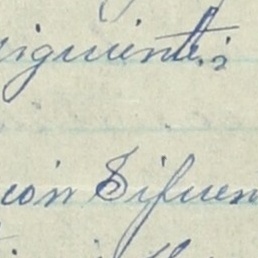 siguiente:
ción Sifuen